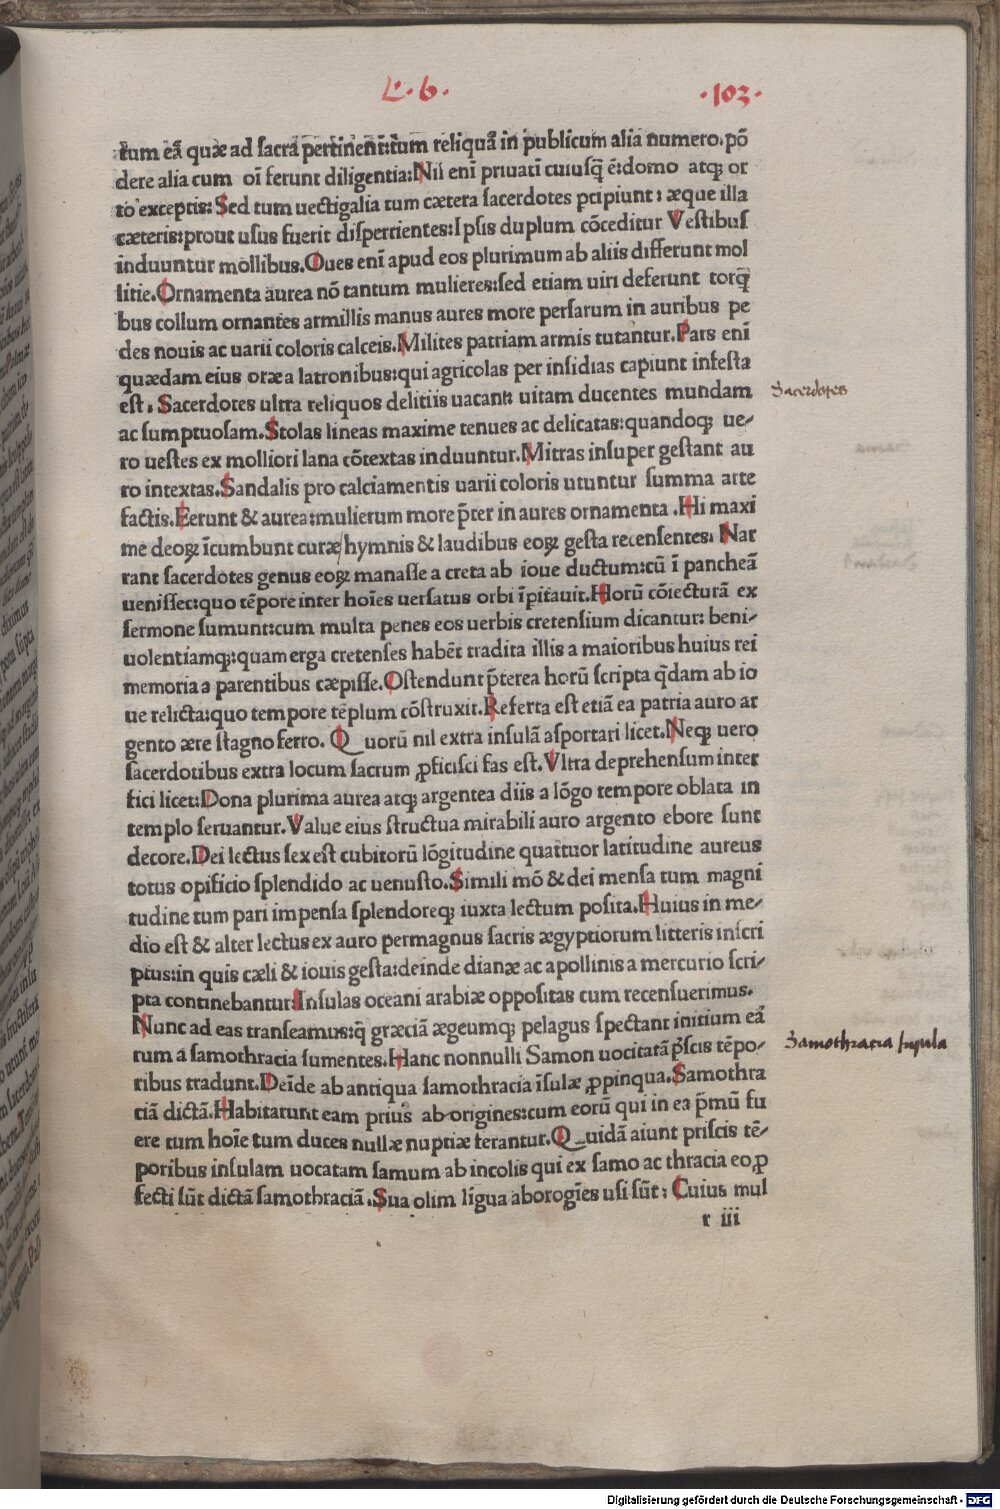 L. 6. ·103·
tum eā quæ ad sacra pertinent:tum reliquā in publicum alia numero.pō
dere alia cum oī ferunt diligentia:Nil enī priuatī cuiusq̄ ē:domo atq; or
to exceptis:Sed tum uectigalia tum cætera sacerdotes pcipiunt: æque illa
cæteris:prout usus fuerit dispertientes:Ipsis duplum cōceditur Vestibus
induuntur mollibus.Oues enī apud eos plurimum ab aliis differunt mol
litie.Ornamenta aurea nō tantum mulieres:sed etiam uiri deferunt torq̄
bus collum ornantes armillis manus aures more persarum in auribus pe
des nouis ac uarii coloris calceis.Milites patriam armis tutantur.Pars enī
quædam eius oræ a latronibus:qui agricolas per insidias capiunt infesta
est. Sacerdotes ultra reliquos delitiis uacant: uitam ducentes mundam
Sacerdotes
ac sumptuosam.Stolas lineas maxime tenues ac delicatas:quandoq; ue-
ro uestes ex molliori lana cōtextas induuntur.Mitras insuper gestant au
ro intextas.Sandalis pro calciamentis uarii coloris utuntur summa arte
factis.Ferunt & aurea:mulierum more p̄ter in aures ornamenta .Hi maxi
me deoꝝ īcumbunt curæ/hymnis & laudibus eoꝝ gesta recensentes. Nar
rant sacerdotes genus eoꝝ manasse a creta ab ioue ductum:cū ī pancheā
uenisset:quo tēpore inter hoīes uersatus orbi īpitauit.Horū cōiecturā ex
sermone sumunt:cum multa penes eos uerbis cretensium dicantur: beni-
uolentiamq;:quam erga cretenses habēt tradita illis a maioribus huius rei
memoria a parentibus cæpisse.Ostendunt p̄terea horū scripta q̄dam ab io
ue relicta:quo tempore tēplum cōstruxit.Referta est etiā ea patria auro ar
gento ære stagno ferro. Quorū nil extra insulā asportari licet.Neq; uero
sacerdotibus extra locum sacrum ꝓficisci fas est.Vltra deprehensum inter
fici licet:Dona plurima aurea atq; argentea diis a lōgo tempore oblata in
templo seruantur.Value eius structua mirabili auro argento ebore sunt
decore.Dei lectus sex est cubitorū lōgitudine quattuor latitudine aureus
totus opificio splendido ac uenusto.Simili mō & dei mensa tum magni
tudine tum pari impensa splendoreq; iuxta lectum posita.Huius in me-
dio est & alter lectus ex auro permagnus sacris ægyptiorum litteris inscri
ptus:in quis cæli & iouis gesta:deinde dianæ ac apollinis a mercurio scri-
pta continebantur.Insulas oceani arabiæ oppositas cum recensuerimus.
Nunc ad eas transeamus:q̄ græciā ægeumq; pelagus spectant initium eā
rum a samothracia sumentes.Hanc nonnulli Samon uocitatā p̄scis tēpo-
Samothracia Insula
ribus tradunt.Deīde ab antiqua samothracia īsulæ ꝓpinqua.Samothra
ciā dictā.Habitarunt eam prius ab origines:cum eorū qui in ea p̄mū fu
ere tum hoīe tum duces nullæ nuptiæ terantur.Quidā aiunt priscis tē-
poribus insulam uocatam samum ab incolis qui ex samo ac thracia eo ꝓ
fecti sūt dictā samothraciā.Sua olim līgua aborogīes usi sūt: Cuius mul
r iii
Digitalisierung gefördert durch die Deutsche Forschungsgemeinschaft - DFG